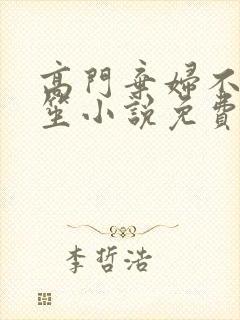 高門棄婦不
笙小說免費
李哲浩